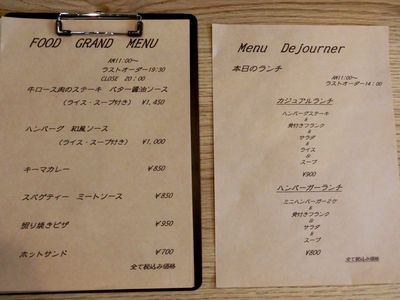 FOOD GRAND MENU
AM11:00～
ラストオーダー19:30
CLOSE 20:00
牛ロース肉のステーキ バター醤油ソース
(ライス・スープ付き) ¥1,450
ハンバーグ 和風ソース
(ライス・スープ付き) ¥1,000
キーマカレー ¥850
スパゲティー ミートソース ¥850
照り焼きピザ ¥950
ホットサンド ¥700
全て税込み価格
Menu Dejourner
本日のランチ
AM11:00～
ラストオーダー14:00
カジュアルランチ
ハンバーグステーキ
&
骨付きフランク
&
サラダ
&
ライス
&
スープ
¥900
ハンバーガーランチ
ミニハンバーガー2ケ
&
骨付きフランク
&
サラダ
&
スープ
¥800
全て税込み価格